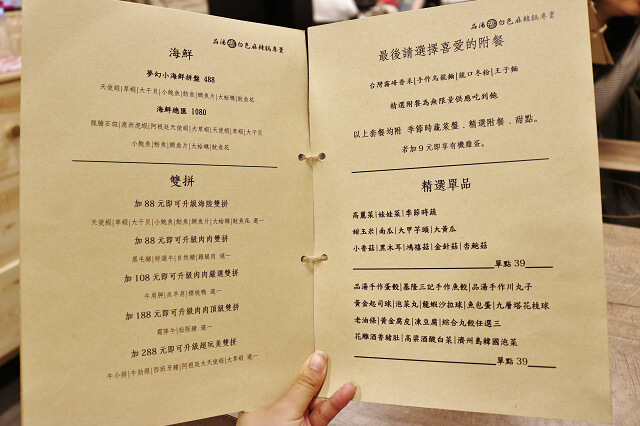 品湯 白色麻辣鍋專賣
海鮮
夢幻小海鮮拼盤 488
天使蝦|草蝦|大干貝|小鮑魚|魴魚|鯛魚片|大蛤蠣|魷魚花
海鮮總匯 1080
龍膽石斑|澳洲虎蝦|阿根廷天使蝦|大草蝦|天使蝦|草蝦|大干貝
小鮑魚|魴魚|鯛魚片|大蛤蠣|魷魚花
雙拼
加 88 元即可升級海陸雙拼
天使蝦|草蝦|大干貝|小鮑魚|魴魚|鯛魚片|大蛤蠣|魷魚花 選一
加 88 元即可升級肉肉雙拼
黑毛豬|特選牛|自然豬|雞腿肉 選一
加 108 元即可升級肉肉嚴選雙拼
牛肩胛|羔羊肩|櫻桃鴨 選一
加 188 元即可升級肉肉頂級雙拼
霜降牛|松阪豬 選一
加 288 元即可升級超玩美雙拼
牛小排|牛肋眼|西班牙豬|阿根廷大天使蝦|大草蝦 選一
品湯 白色麻辣鍋專賣
最後請選擇喜愛的附餐
台灣霧峰香米|手作烏龍麵|龍口冬粉|王子麵
精選附餐為無限量供應吃到飽
以上套餐均附 季節時蔬菜盤．精選附餐．甜點。
若加 9 元即享有機雞蛋。
精選單品
高麗菜|娃娃菜|季節時蔬
甜玉米|南瓜|大甲芋頭|大黃瓜
小香菇|黑木耳|鴻禧菇|金針菇|杏鮑菇
單點 39
品湯手作蛋餃|基隆三記手作魚餃|品湯手作川丸子
黃金起司球|泡菜丸|龍蝦沙拉球|魚包蛋|九層塔花枝球
老油條|黃金腐皮|凍豆腐|綜合丸餃任選三
花雕酒香豬肚|高粱酒酸白菜|濟州島韓國泡菜
單點 39